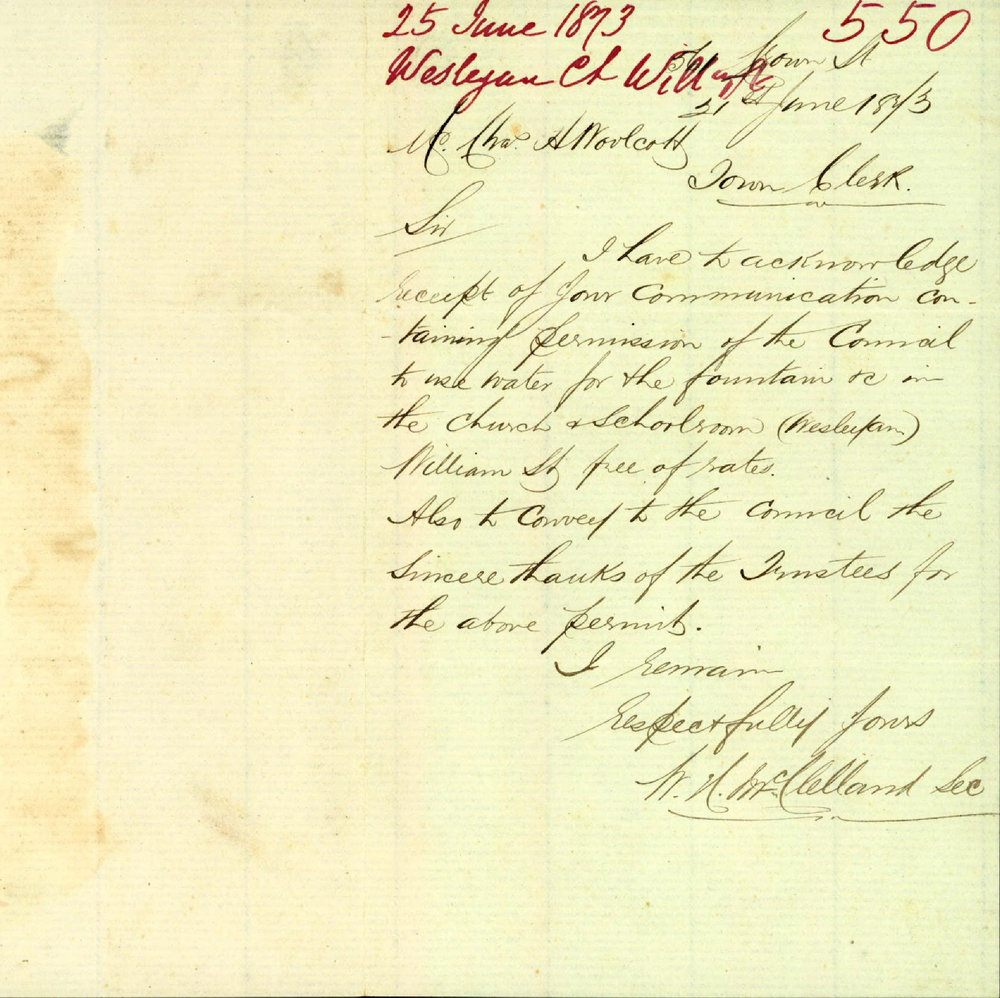 25 June 1873
550
Wesleyan Ch Will
Crown St
21st June 1873
Mr. Chas. H Woolcott
Town Clerk.
Sir
I have to acknowledge
receipt of your communication con-
-taining permission of the Council
to use water for the fountain &c in
the church & schoolroom (Wesleyan)
William St free of rates.
Also to convey to the Council the
sincere thanks of the Trustees for
the above permit.
I remain
respectfully yours
W. H. McClelland Sec